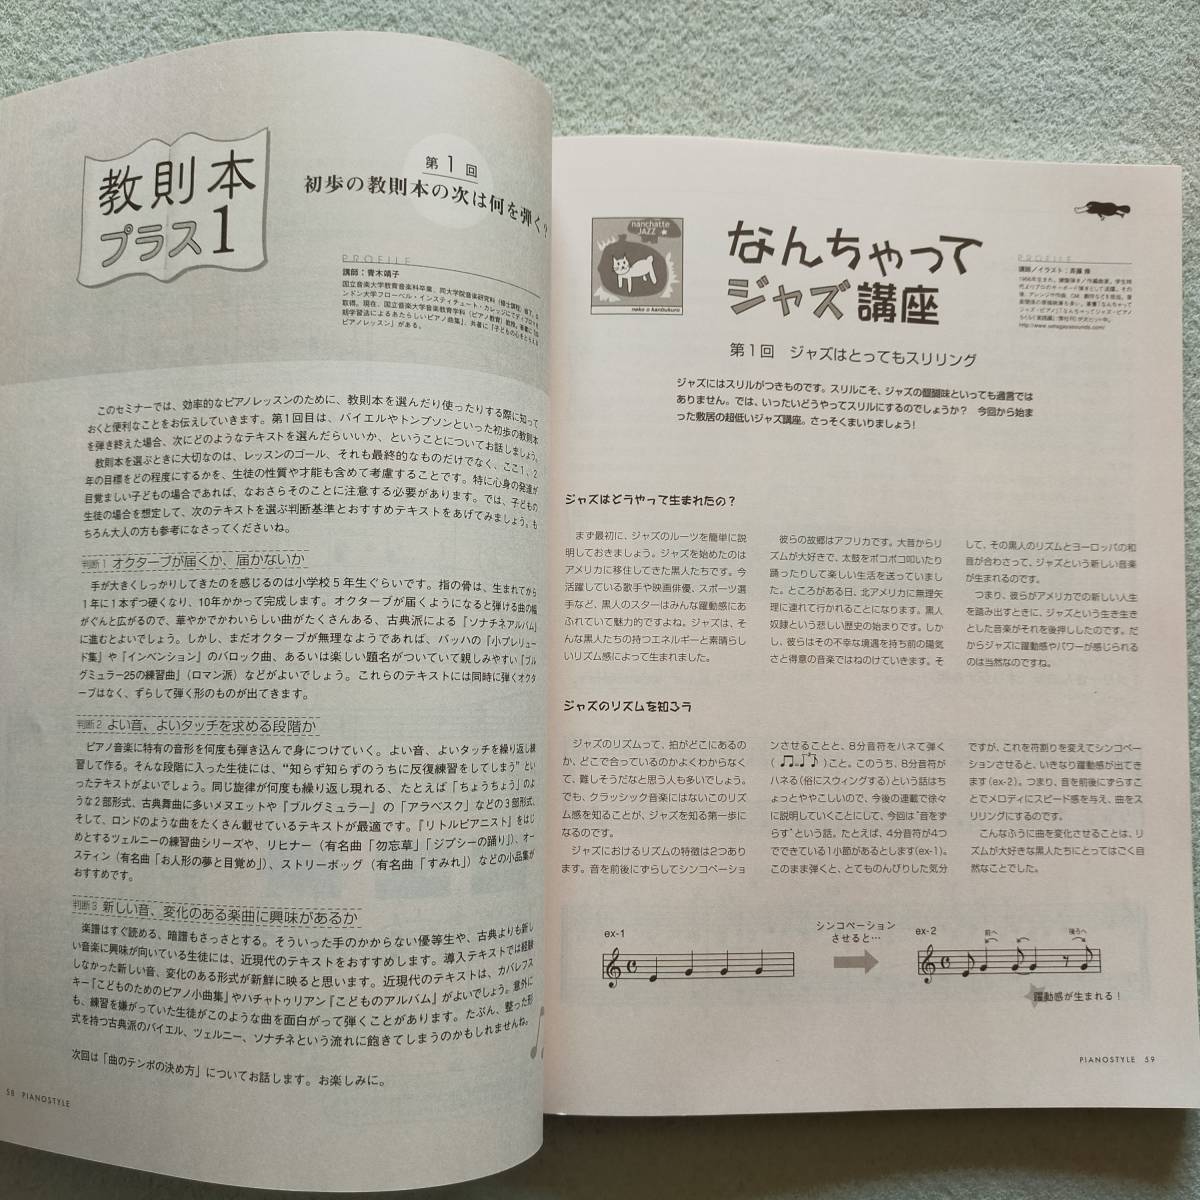 教則本
プラス1
第1回
初歩の教則本の次は何を弾く?
PROFILE
講師:青木靖子
このセミナーでは、効率的なピアノレッスンのために、教則本を選んだり使ったりする際に知って
おくと便利なことをお伝えしていきます。第1回目は、バイエルやトンプソンといった初歩の教則本
を弾き終えた場合、次にどのようなテキストを選んだらいいか、ということについてお話しましょう。
教則本を選ぶときに大切なのは、レッスンのゴール、それも最終的なものだけでなく、ここ1、2
年の目標をどの程度にするかを、生徒の性質や才能も含めて考慮することです。特に心身の発達が
目覚ましい子どもの場合であれば、なおさらそのことに注意する必要があります。では、子どもの
生徒の場合を想定して、次のテキストを選ぶ判断基準とおすすめテキストをあげてみましょう。も
ちろん大人の方も参考になさってくださいね。
判断1 オクターブが届くか、届かないか
手が大きくしっかりしてきたのを感じるのは小学校5年生ぐらいです。指の骨は、生まれてから
1年に1本ずつ硬くなり、10年かかって完成します。オクターブが届くようになると弾ける曲の幅
がぐんと広がるので、華やかでかわいらしい曲がたくさんある、古典派による『ソナチネアルバム』
に進むとよいでしょう。しかし、まだオクターブが無理なようであれば、バッハの『小プレリュー
ド集』や『インベンション』のバロック曲、あるいは楽しい題名がついていて親しみやすい『ブル
グミュラー25の練習曲』(ロマン派)などがよいでしょう。これらのテキストには同時に弾くオクタ
ーブはなく、ずらして弾く形のものが出てきます。
判断2 よい音、よいタッチを求める段階か
ピアノ音楽に特有の音形を何度も弾き込んで身につけていく。よい音、よいタッチを繰り返し練
習して作る。そんな段階に入った生徒には、“知らず知らずのうちに反復練習をしてしまう”とい
ったテキストがよいでしょう。同じ旋律が何度も繰り返し現れる、たとえば「ちょうちょう」のよ
うな2部形式、古典舞曲に多いメヌエットや『ブルグミュラー』の「アラベスク」などの3部形式、
そして、ロンドのような曲をたくさん載せているテキストが最適です。『リトルピアニスト』をはじ
めとするツェルニーの練習曲シリーズや、リヒナー(有名曲「勿忘草」「ジプシーの踊り」)、オー
スティン(有名曲「お人形の夢と目覚め」)、ストリーボッグ(有名曲「すみれ」)などの小品集が
おすすめです。
判断3 新しい音、変化のある楽曲に興味があるか
楽譜はすぐ読める、暗譜もさっさとする。そういった手のかからない優等生や、古典よりも新し
い音楽に興味が向いている生徒には、近現代のテキストをおすすめします。導入テキストでは経験
しなかった新しい音、変化のある形式が新鮮に映ると思います。近現代のテキストは、カバレフス
キー『こどものためのピアノ小曲集』やハチャトゥリアン『こどものアルバム』がよいでしょう。意外に
も、練習を嫌がっていた生徒がこのような曲を面白がって弾くことがあります。たぶん、整った形
式を持つ古典派のバイエル、ツェルニー、ソナチネという流れに飽きてしまうのかもしれませんね。
次回は「曲のテンポの決め方」についてお話します。お楽しみに。
58 PIANOSTYLE
nanchatte
JAZZ ★
neko o kanbukuro
なんちゃって
ジャズ講座
PROFILE
第1回 ジャズはとってもスリリング
ジャズにはスリルがつきものです。スリルこそ、ジャズの醍醐味といっても過言では
ありません。では、いったいどうやってスリルにするのでしょうか? 今回から始ま
った敷居の超低いジャズ講座。さっそくまいりましょう!
ジャズはどうやって生まれたの?
まず最初に、ジャズのルーツを簡単に説
明しておきましょう。ジャズを始めたのは
アメリカに移住してきた黒人たちです。今
活躍している歌手や映画俳優、スポーツ選
手など、黒人のスターはみんな躍動感にあ
ふれていて魅力的ですよね。ジャズは、そ
んな黒人たちの持つエネルギーと素晴らし
いリズム感によって生まれました。
彼らの故郷はアフリカです。大昔からリ
ズムが大好きで、太鼓をポコポコ叩いたり
踊ったりして楽しい生活を送っていまし
た。ところがある日、北アメリカに無理矢
理に連れて行かれることになります。黒人
奴隷という悲しい歴史の始まりです。しか
し、彼らはその不幸な境遇を持ち前の陽気
さと得意の音楽ではねのけていきます。そ
して、その黒人のリズムとヨーロッパの和
音が合わさって、ジャズという新しい音楽
が生まれるのです。
つまり、彼らがアメリカでの新しい人生
を踏み出すときに、ジャズという生き生き
とした音楽がそれを後押ししたのです。だ
からジャズに躍動感やパワーが感じられる
のは当然なのですね。
ジャズのリズムを知ろう
ジャズのリズムって、拍がどこにあるの
か、どこで合っているのかよくわからなく
て、難しそうだなと思う人も多いでしょう。
でも、クラッシック音楽にはないこのリズ
ム感を知ることが、ジャズを知る第一歩に
なるのです。
ジャズにおけるリズムの特徴は2つあり
ます。音を前後にずらしてシンコペーショ
ンさせることと、8分音符をハネて弾く
( )こと。このうち、8分音符が
ハネる(俗にスウィングする)という話はち
ょっとややこしいので、今後の連載で徐々
に説明していくことにして、今回は“音をず
らす”という話。たとえば、4分音符が4つ
でできている1小節があるとします(ex-1)。
このまま弾くと、とてものんびりした気分
ですが、これを符割りを変えてシンコペー
ションさせると、いきなり躍動感が出てき
ます(ex-2)。つまり、音を前後にずらすこ
とでメロディにスピード感を与え、曲をス
リリングにするのです。
こんなふうに曲を変化させることは、リ
ズムが大好きな黒人たちにとってはごく自
然なことでした。
ex-1
シンコペーション
させると…
ex-2
前へ
後ろへ
躍動感が生まれる!
PIANOSTYLE 59